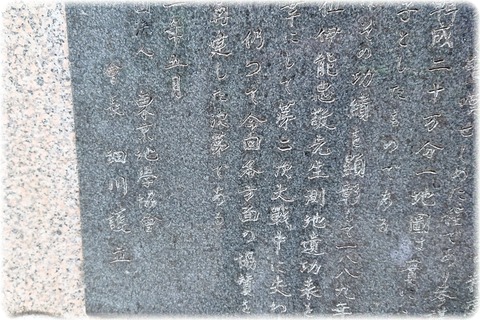 成二十万分一地圖は實に
としたものである
その功績を顕彰して一八八九年
伊能忠敬先生測地遺功表を
幸にして第二次大戦中に失わ
仍って今回各方面の協賛を
再建した次第である
年五月
東京地學協會
會長 細川護立